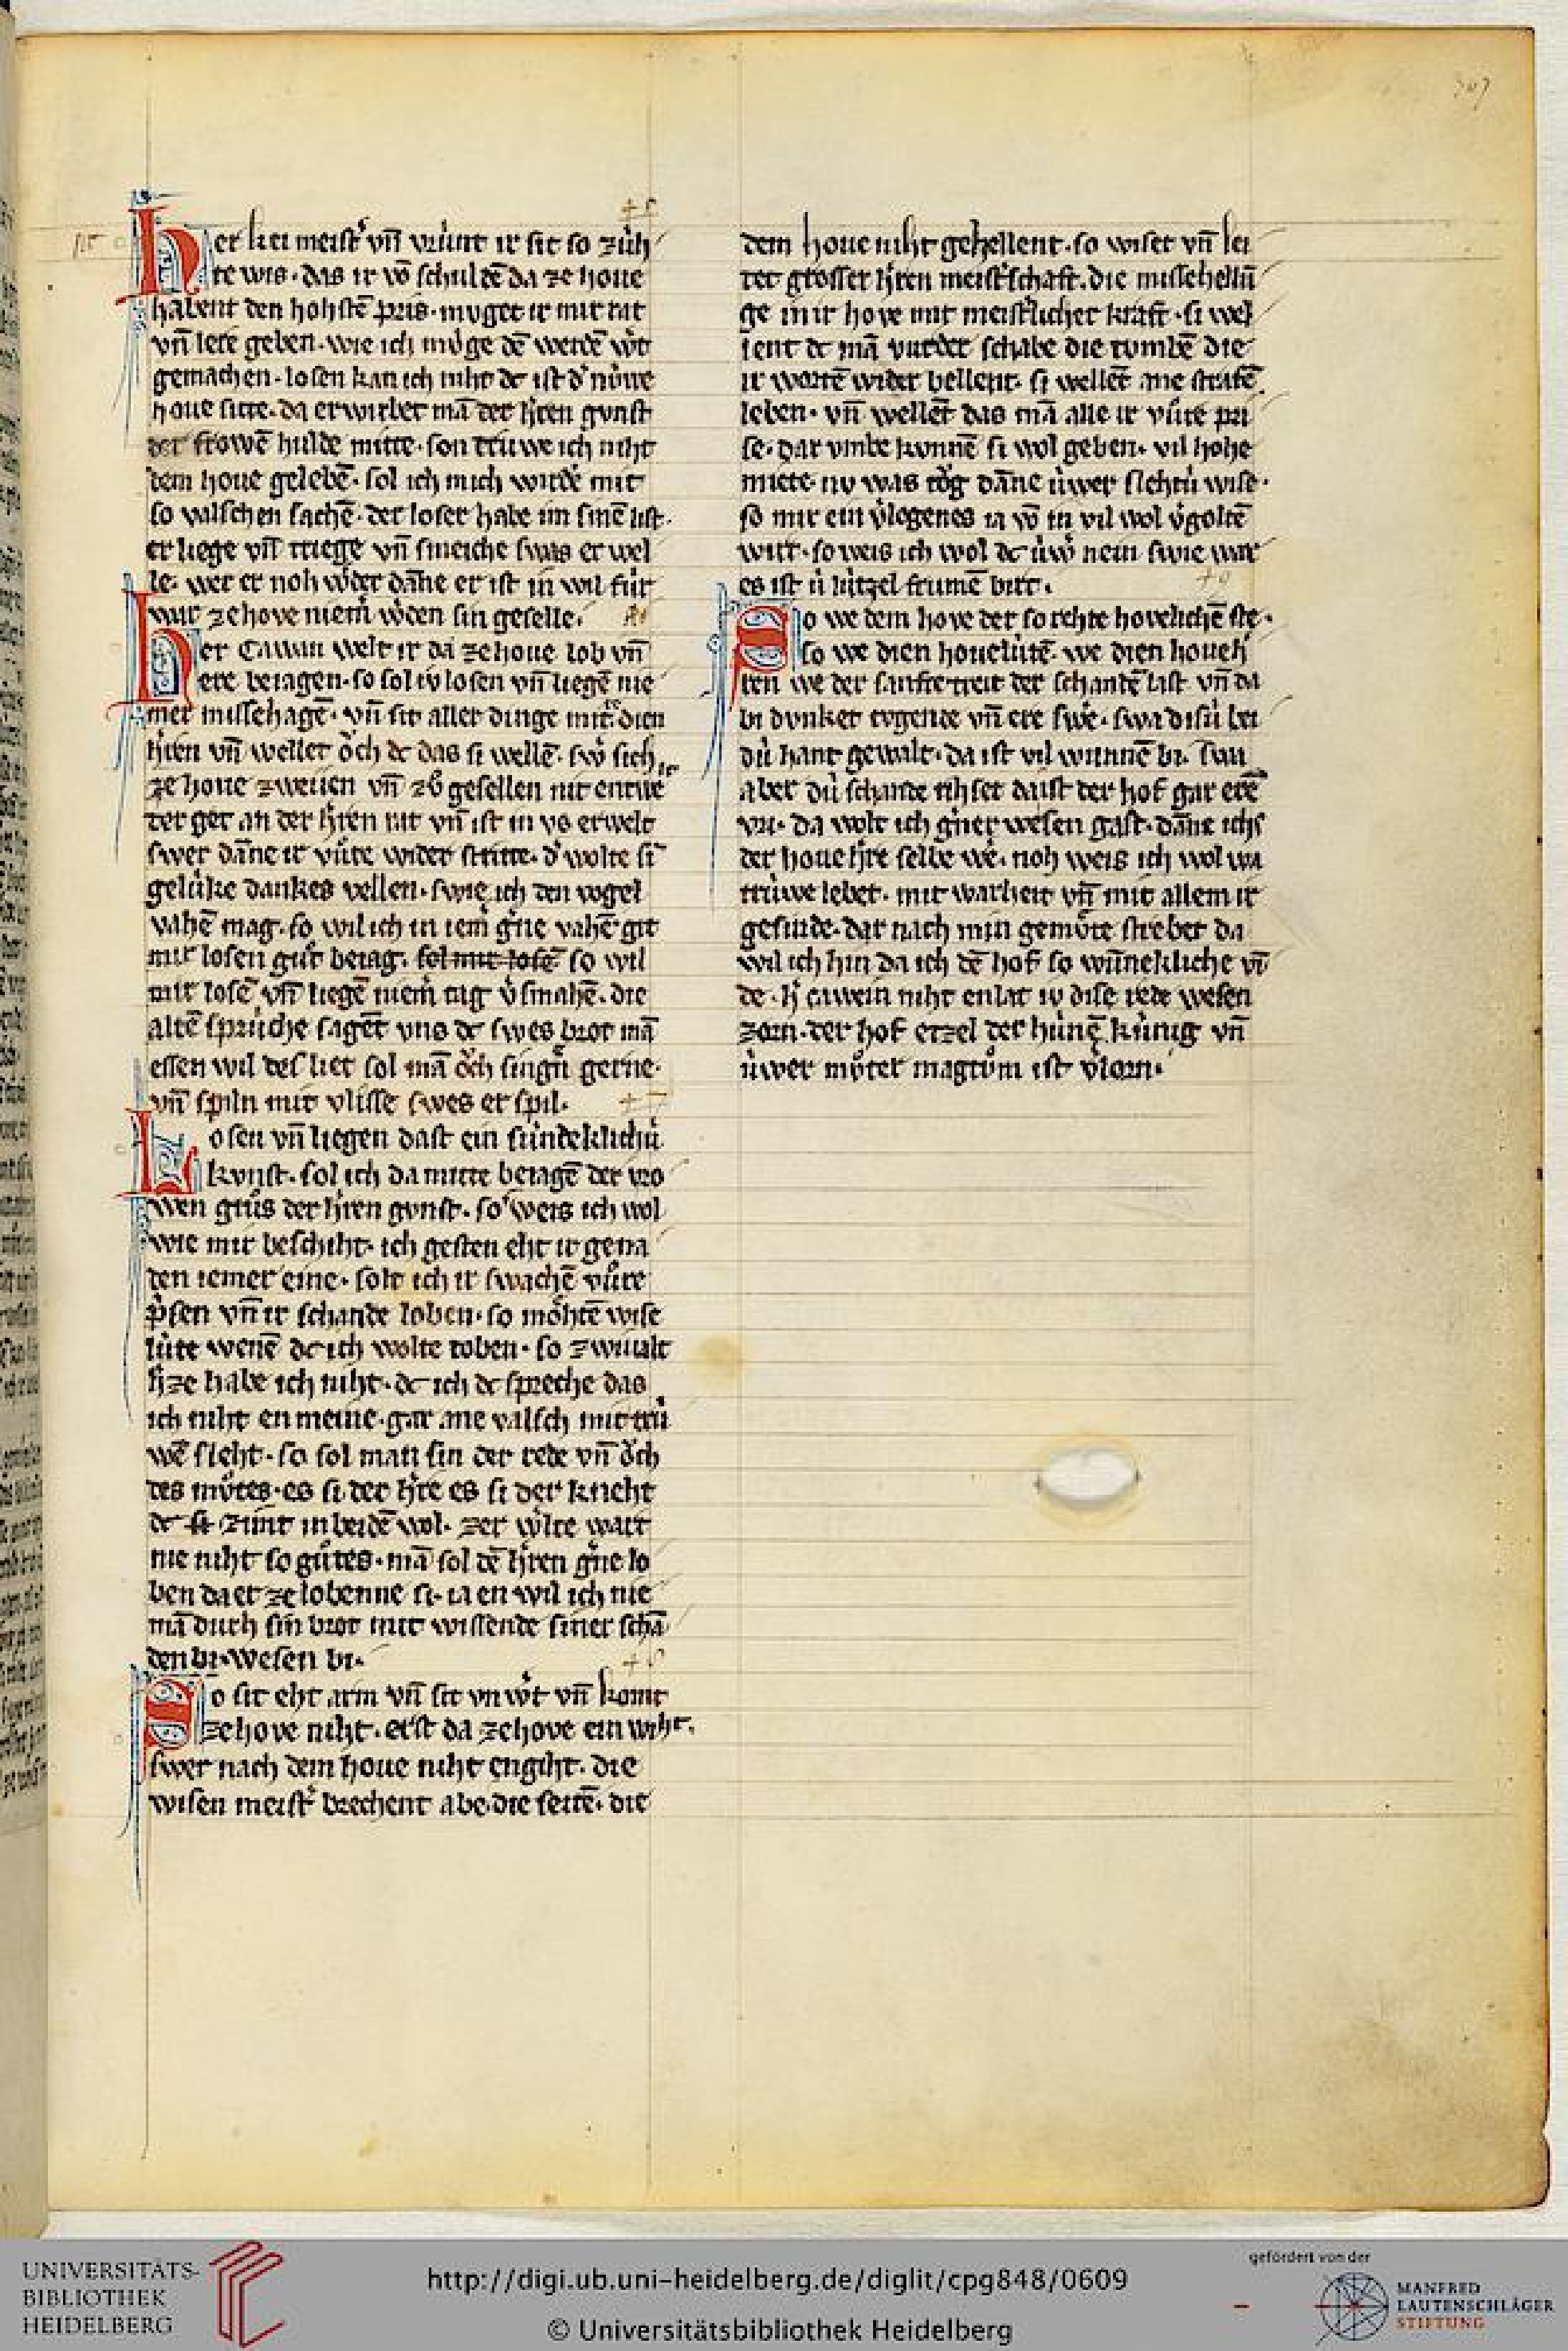 her kei meistˀ vn̄ vrúnt ir sit so zúh
te wis · das ir vō schuldē da ze houe
habent den hohstē pris · muget ir mir rat
vn̄ lere geben · wie ich mv̊ge dē werdē wˀt
gemachen · losen kan ich niht dc ist dˀ núwe
houe sitte · da erwirbet mā der hˀren gvnst
der frowē hulde mitte · son trúwe ich niht
dem houe gelebē · sol ich mich wirdē mit
so valschen sachē · der loser habe im sinē list ·
er liege vn̄ triege vn̄ smeiche swas er wel
le · wer er noh wˀder dāne er ist in wil fúr
war ze hove niemˀ wˀden sin geselle ·
her Gawan welt ir da ze houe lob vn̄
ere beiagen · so sol iv losen vn̄ liegē nie
mer missehagē · vn̄ sit aller dinge mitˀ dien
hˀren vn̄ wellet o̊ch dc das si wellē · swˀ sich
ze houe zweien vn̄ zů gesellen nit entwe
der get an der hˀren rat vn̄ ist in vs erwelt
swer dāne ir vůre wider stritte · dˀ wolte sī
gelúke dankes vellen · swie ich den vogel
vahē mag · so wil ich in iemˀ gˀne vahē git
mir losen gůt beiag · sol mir losē so wil
mir losē vn̄ liegē niemˀ tag vˀsmahē · die
altē sprúche sagēt vns dc swes brot mā
essen wil des liet sol mā o̊ch singē gerne ·
vn̄ spiln mit vlisse swes er spil ·
Losen vn̄ liegen dast ein súndeklichú
kvnst · sol ich da mitte beiagē der vro
wen grůs der hˀren gvnst · so weis ich wol
wie mir beschiht · ich gesten eht ir gena
den iemer eine · solt ich ir swachē vůre
pˀsen vn̄ ir schande loben · so mo̊htē wise
lúte wenē dc ich wolte toben · so zwiualt
hˀze habe ich niht · dc ich dc spreche das
ich niht en meine · gar ane valsch mit trú
wē sleht · so sol man sin der rede vn̄ o̊ch
des mv̊tes · es si der hˀre es si der kneht
dc zimt in beidē wol · zer wˀlte wart
nie niht so gůtes · mā sol dē hˀren gˀne lo
ben da er ze lobenne si · ia en wil ich nie
mā durh sin brot mit wissende siner schā
den bi wesen bi ·
So sit eht arm vn̄ sit vnwˀt vn̄ komt
ze hove niht · erst da ze hove ein wiht ·
swer nach dem houe niht engiht · die
wisen meistˀ brechent abe · die seitē · die
dem houe niht gehellent · so wiset vn̄ lei
tet grosser hˀren meistˀschaft · die missehellū
ge mit hove mit meistˀlicher kraft · si wel
lent dc mā vurder schabe die tombē die
ir wortē wider bellent · si wellēt ane strafē
leben · vn̄ wellēt das mā alle ir vůre pri
se · dar vmbe kvnnē si wol geben · vil hohe
miete · nv was to̊g dāne úwer slehtú wise ·
so mir ein vˀlogenes ia vō in vil wol vˀgoltē
wirt · so weis ich wol dc úwˀ nein swie war
es ist ú lútzel frumē birt ·
So we dem hove der so rehte hovelichē ste ·
so we dien houelútē · we dien houeh
ren we der sanfte treit der schandē last vn̄ da
bi dvnket tvgende vn̄ ere swˀe · swa disú bei
dú hant gewalt · da ist vil wunnē bi · swa
aber dú schande rihset da ist der hof gar erē
vri · da wolt ich gˀner wesen gast · dāne ichs
der houe hˀre selbe wˀe · noh weis ich wol wa
trúwe lebet · mit warheit vn̄ mit allem ir
gesinde · dar nach min gemv̊te strebet da
wil ich hin da ich dē hof so wūnekliche vī
de · hˀ Gawein niht enlat iv dise rede wesen
zorn · der hof etzel der húnē kúnig vn̄
úwer mv̊ter magtům ist vˀlorn ·
UNIVERSITÄTS-
BIBLIOTHEK
HEIDELBERG
http://digi.ub.uni-heidelberg.de/diglit/cpg848/0609
© Universitätsbibliothek Heidelberg
gefördert von der
MANFRED
LAUTENSCHLÄGER
STIFTUNG